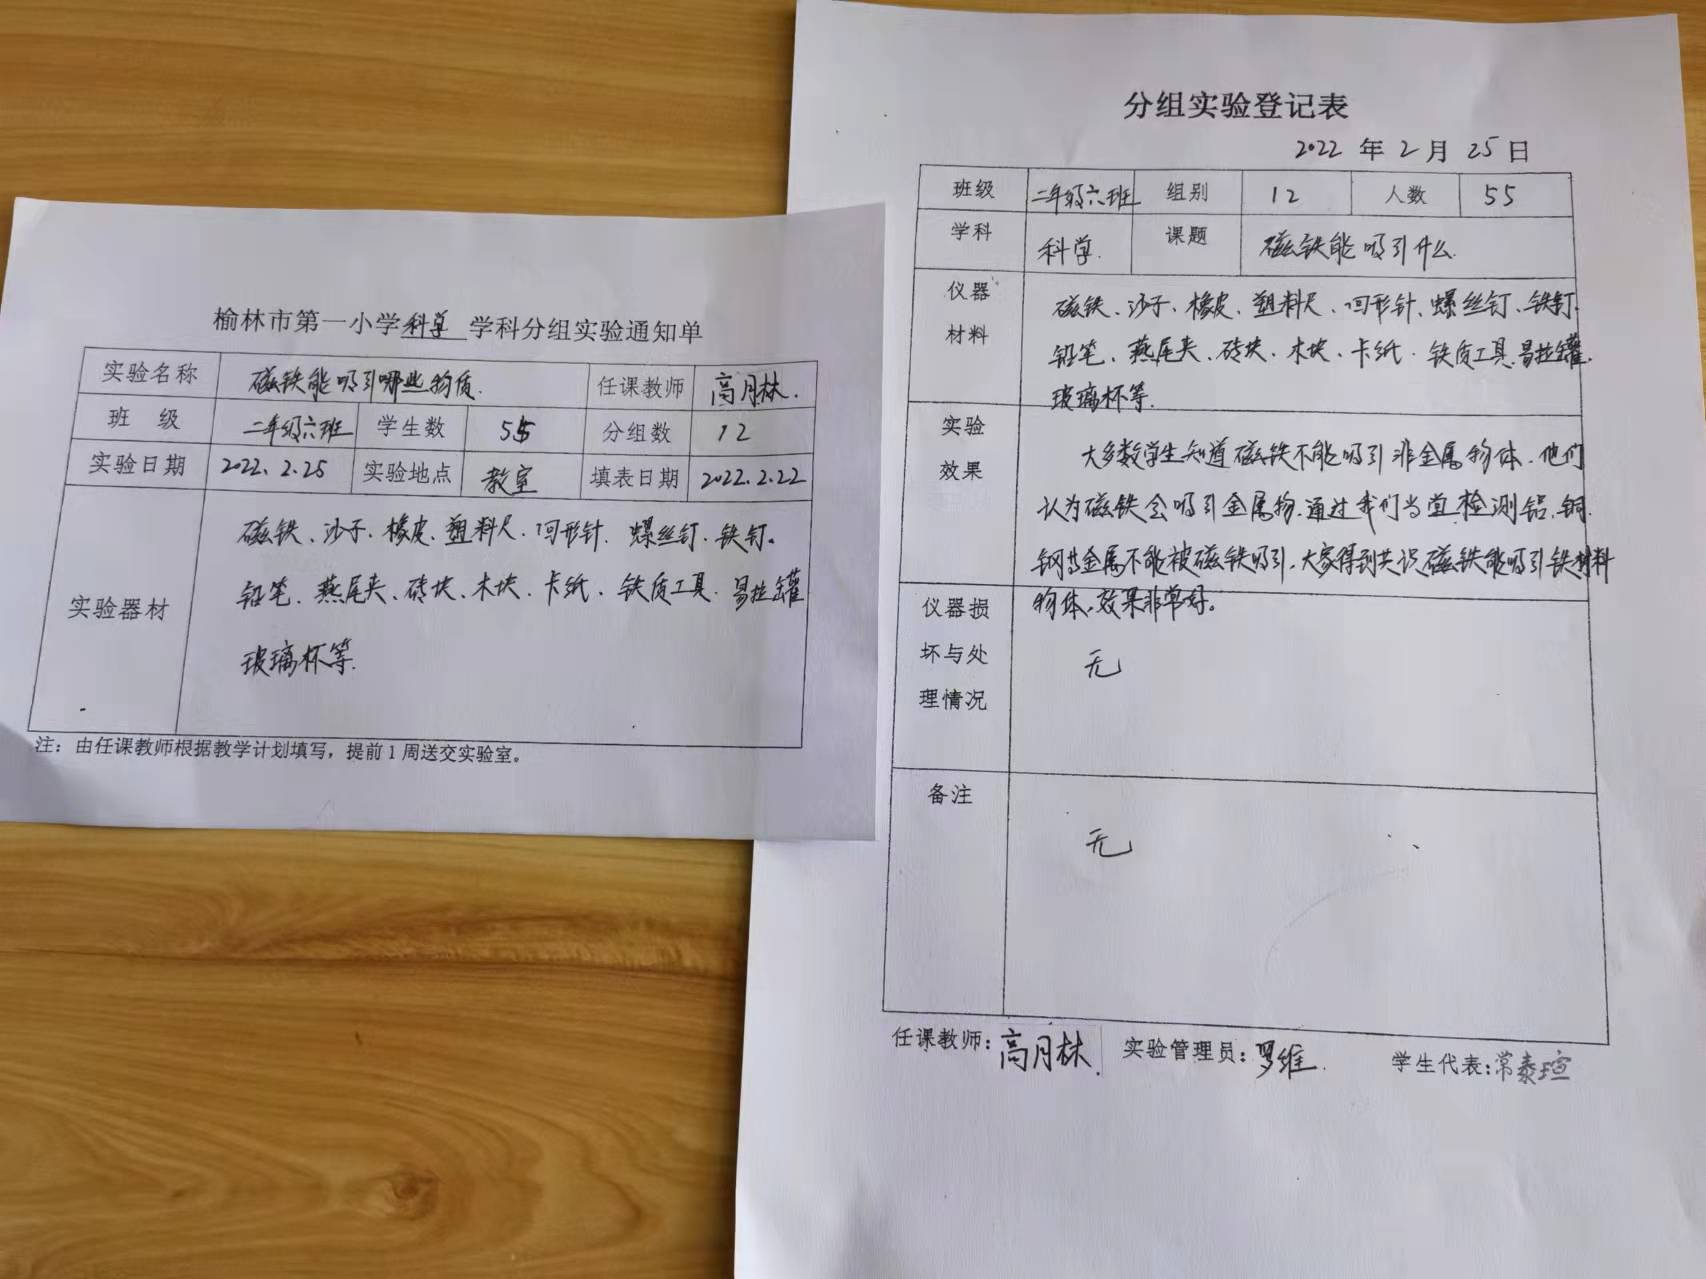 榆林市第一小学科学 学科分组实验通知单
实验名称 磁铁能吸引哪些物质. 任课教师 高月林.
班 级 二年级六班 学生数 55 分组数 12
实验日期 2022.2.25 实验地点 教室 填表日期 2022.2.22
实验器材
磁铁、沙子、橡皮、塑料尺、回形针、螺丝钉、铁钉。
铅笔、燕尾夹、砖块、木块、卡纸、铁质工具、易拉罐
玻璃杯等.
注：由任课教师根据教学计划填写，提前1周送交实验室。
分组实验登记表
2022 年 2 月 25 日
班级 二年级六班 组别 12 人数 55
学科 科学. 课题 磁铁能吸引什么
仪器
材料
磁铁、沙子、橡皮、塑料尺、回形针、螺丝钉、铁钉.
铅笔、燕尾夹、砖块、木块、卡纸、铁质工具、易拉罐.
玻璃杯等.
实验
效果
大多数学生知道磁铁不能吸引非金属物体、他们
认为磁铁会吸引金属物.通过我们当堂检测铝、铜、
钢等金属不能被磁铁吸引,大家得到共识磁铁能吸引铁材料
物体,效果非常好。
仪器损
坏与处
理情况
无
备注
无
任课教师：高月林. 实验管理员：罗维. 学生代表：常泰瑄